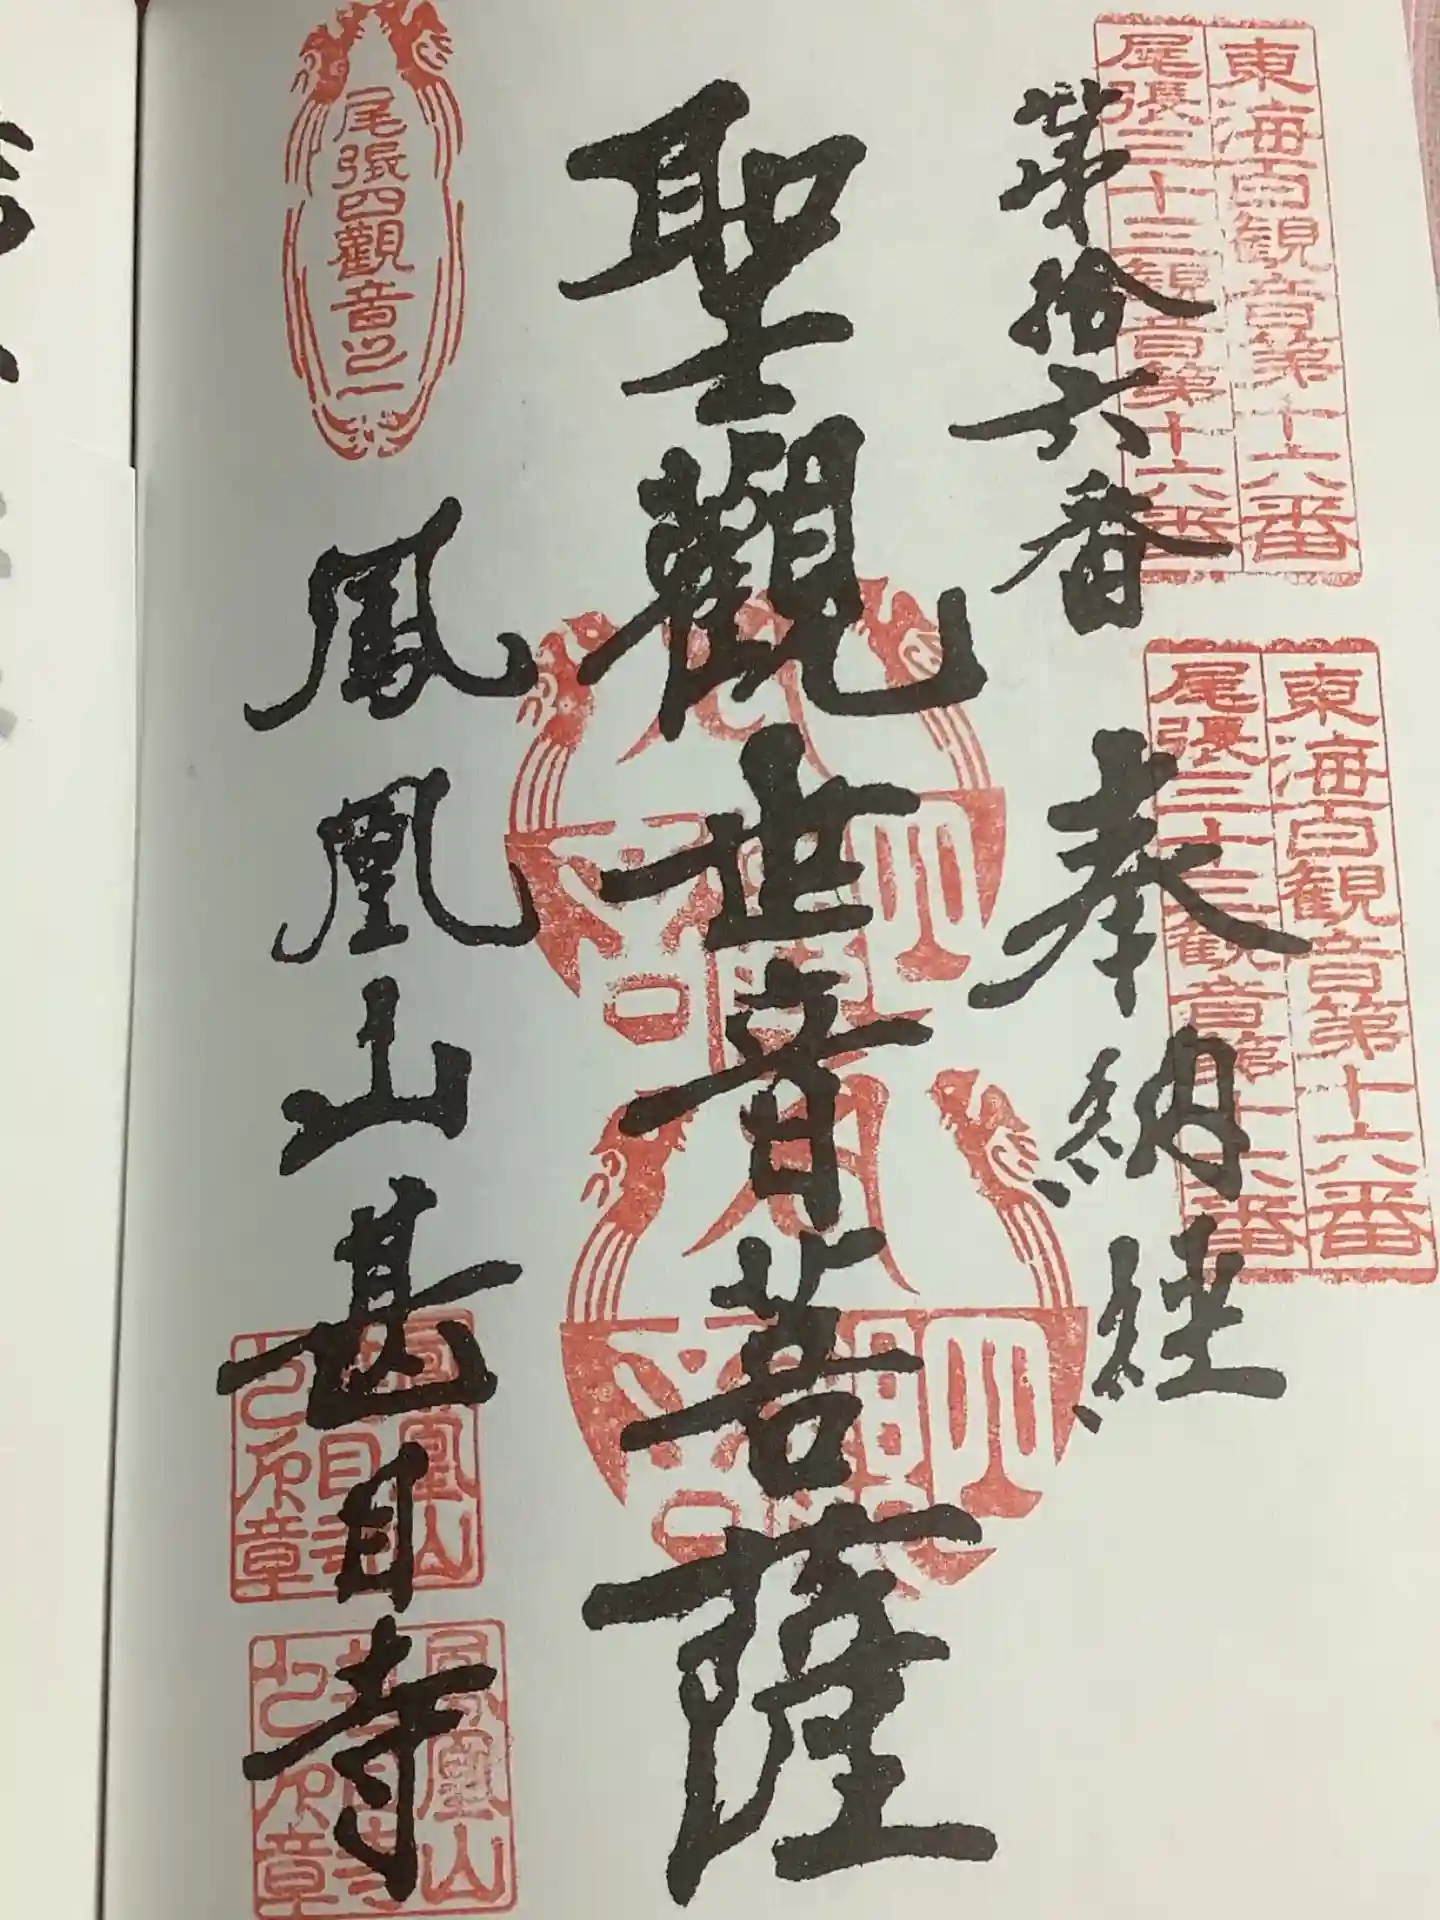 東海百観音第十六番
尾張三十三観音第十六番
東海百観音第十六番
尾張三十三観音第十六番
第拾六番
奉納経
聖觀世音菩薩
尾張四觀音之一
鳳凰山甚目寺
鳳凰山
甚目寺
之印章
鳳凰山
甚目寺
之印章